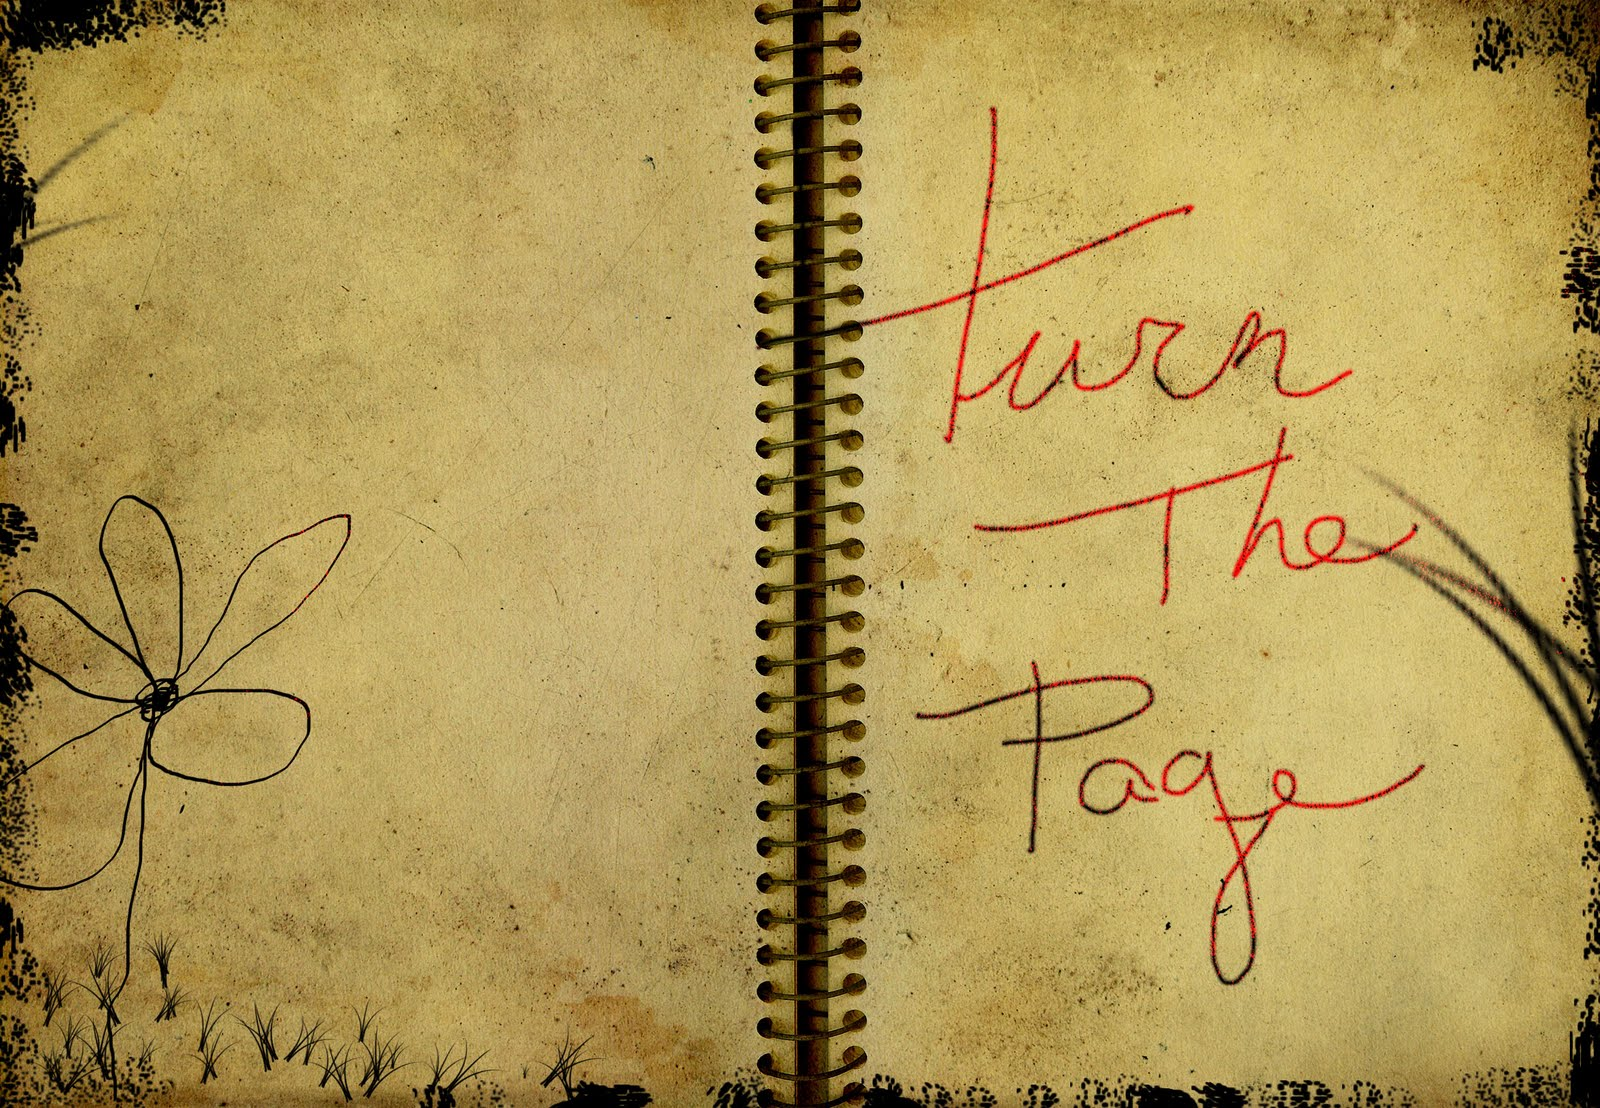 Turn
The
Page